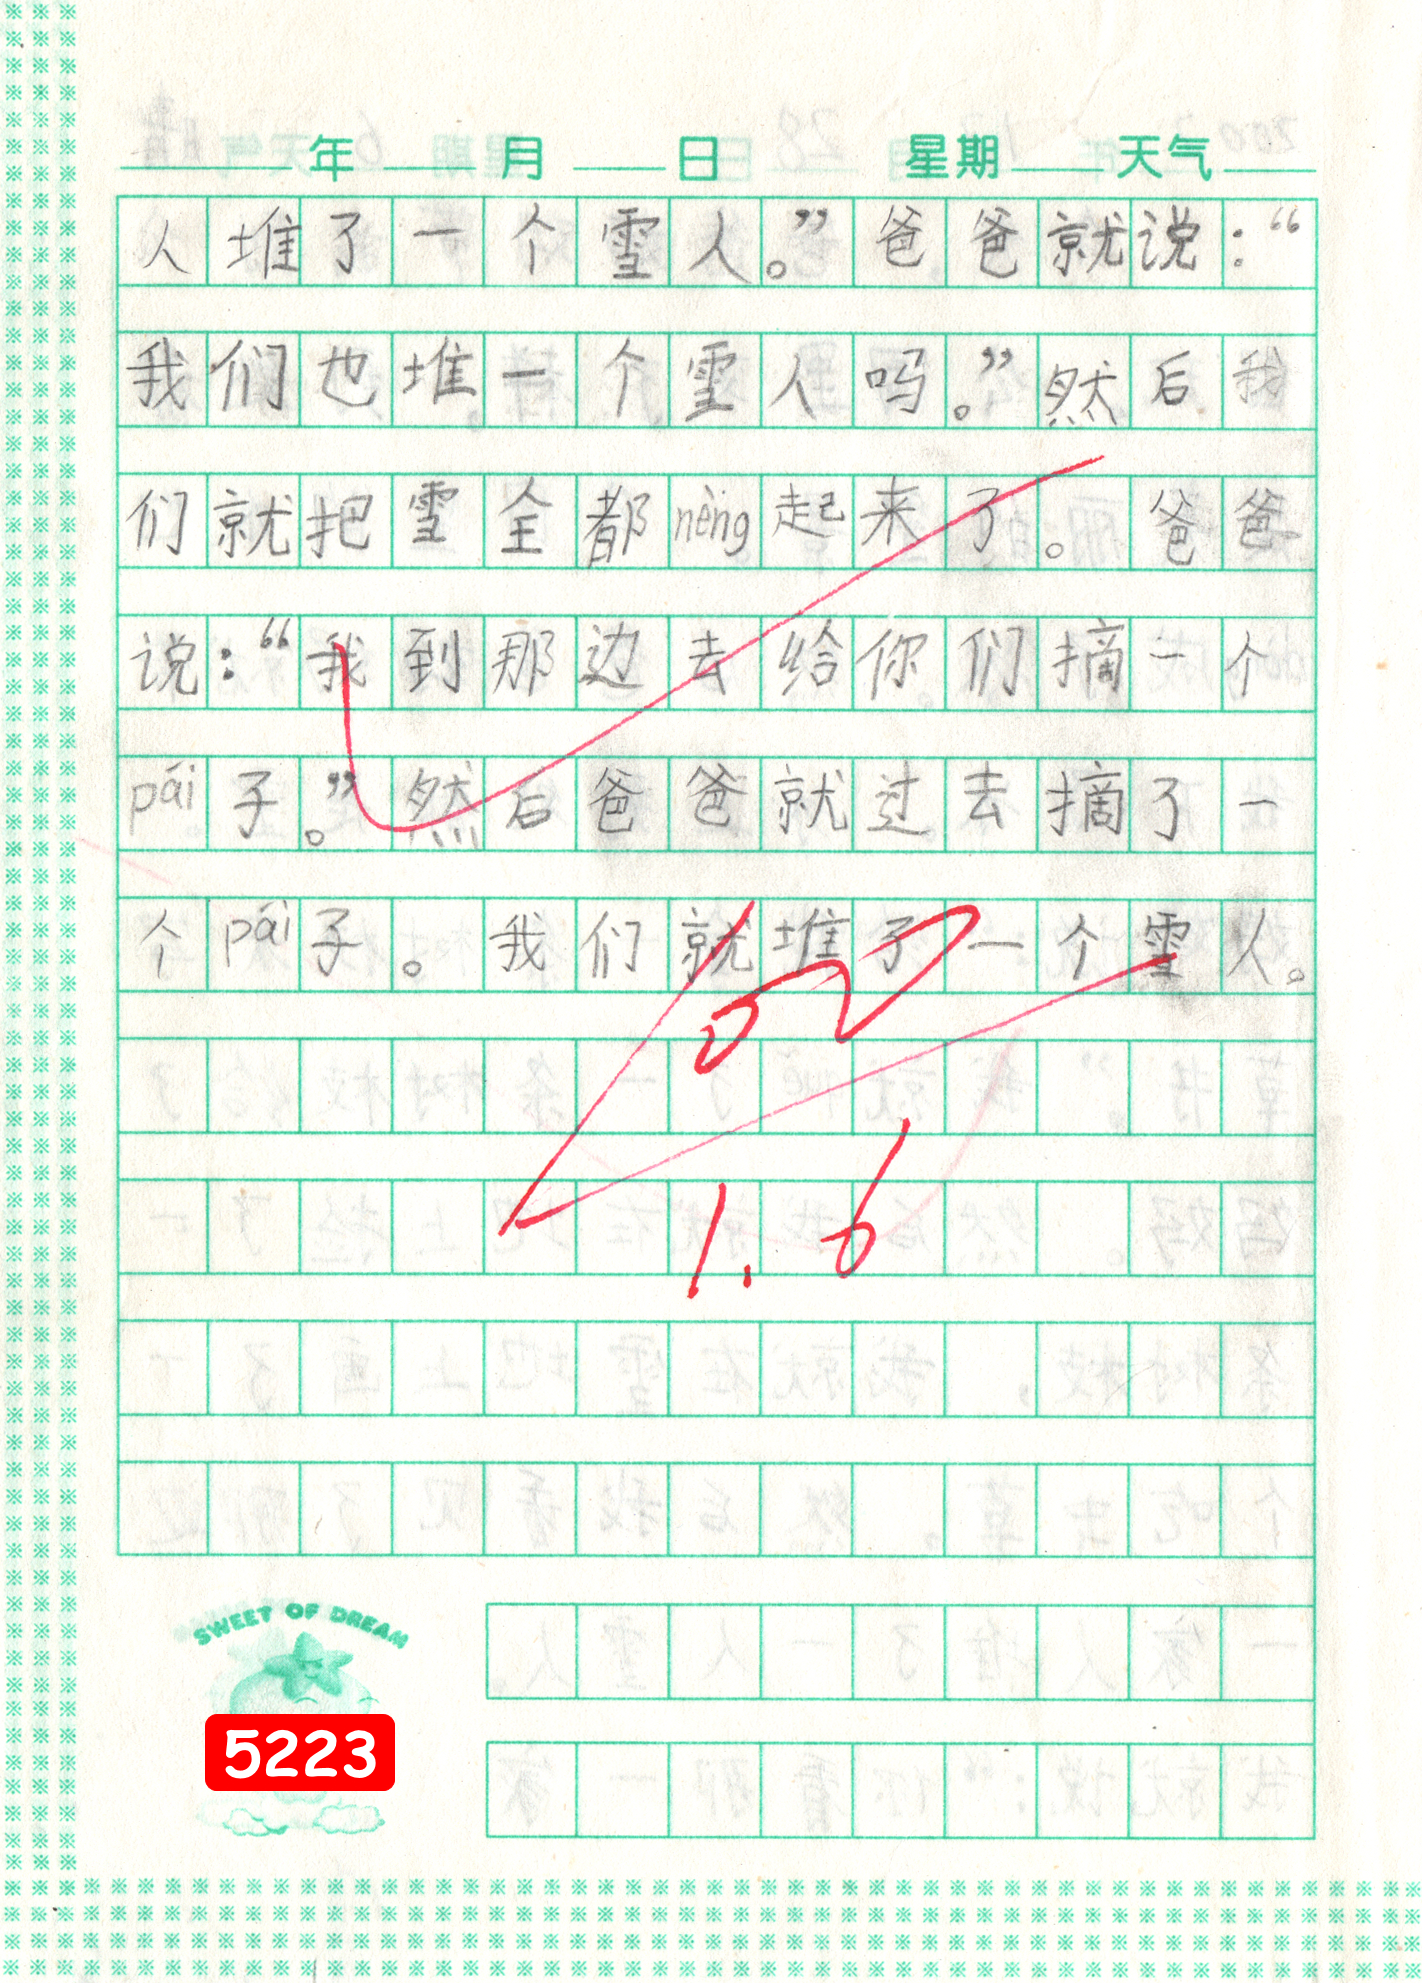 年 月 日 星期 天气
人堆了一个雪人。”爸爸就说：“
我们也堆一个雪人吗。”然后我
们就把雪全都nèng起来了。爸爸
说：“我到那边去给你们摘一个
pái子。”然后爸爸就过去摘了一
个pái子。我们就堆了一个雪人。
1.6
SWEET OF DREAM
5223